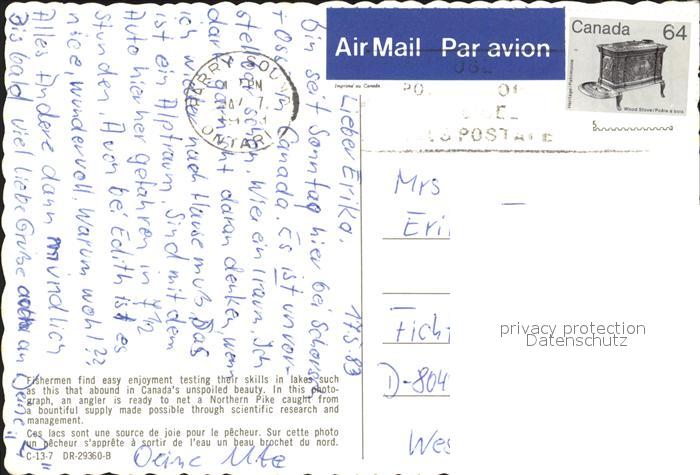 17.5.83
Lieber Erika,
bin seit Sonntag hier bei Schorsch
+ Ossi in Canada. Es ist unvor-
stellbar schön. Wie ein Traum. Ich
darf gar nicht daran denken, wenn
ich wieder nach Hause muß. Das
ist ein Alptraum. Sind mit dem
Auto hierher gefahren in 7 1/2
Stunden. A von bei Edith ist es
nice, wundervoll. Warum wohl??
Alles Andere dann mündlich
Bis bald viel liebe Grüße auch an Deine
Deine Ute
Air Mail Par avion
Imprimé au Canada
Canada 64
Heritage/Patrimoine
Wood Stove/Poêle à bois
PARRY SOUND
PM
ONTARIO
POSTAL
Mrs
Eri
Fich
D-804
Wes
privacy protection
Datenschutz
Fishermen find easy enjoyment testing their skills in lakes such
as this that abound in Canada's unspoiled beauty. In this photo-
graph, an angler is ready to net a Northern Pike caught from
a bountiful supply made possible through scientific research and
management.
Ces lacs sont une source de joie pour le pêcheur. Sur cette photo
un pêcheur s'apprête à sortir de l'eau un beau brochet du nord.
C-13-7 DR-29360-B